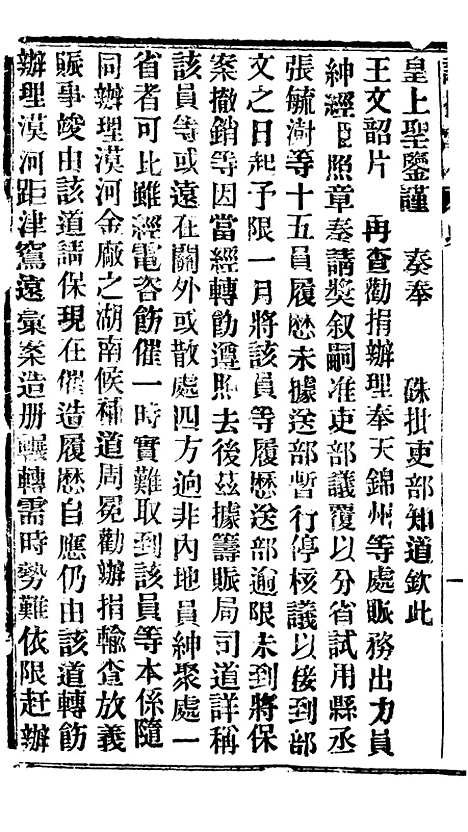 皇上聖鑒謹　　奏奉　　硃批吏部知道欽此
王文韶片　再查勸捐辦理奉天錦州等處賑務出力員
紳經臣照章奏請獎叙嗣准吏部議覆以分省試用縣丞
張毓澍等十五員履歷未據送部暫行停核議以接到部
文之日起予限一月將該員等履歷送部逾限未到將保
案撤銷等因當經轉飭遵照去後茲據籌賑局司道詳稱
該員等或遠在關外或散處四方逈非內地員紳聚處一
省者可比雖經電咨飭催一時實難取到該員等本係隨
同辦理漠河金廠之湖南候補道周冕勸辦捐輸查放義
賑事竣由該道請保現在催造履歷自應仍由該道轉飭
辦理漠河距津窵遠彙案造册輾轉需時勢難依限赶辦